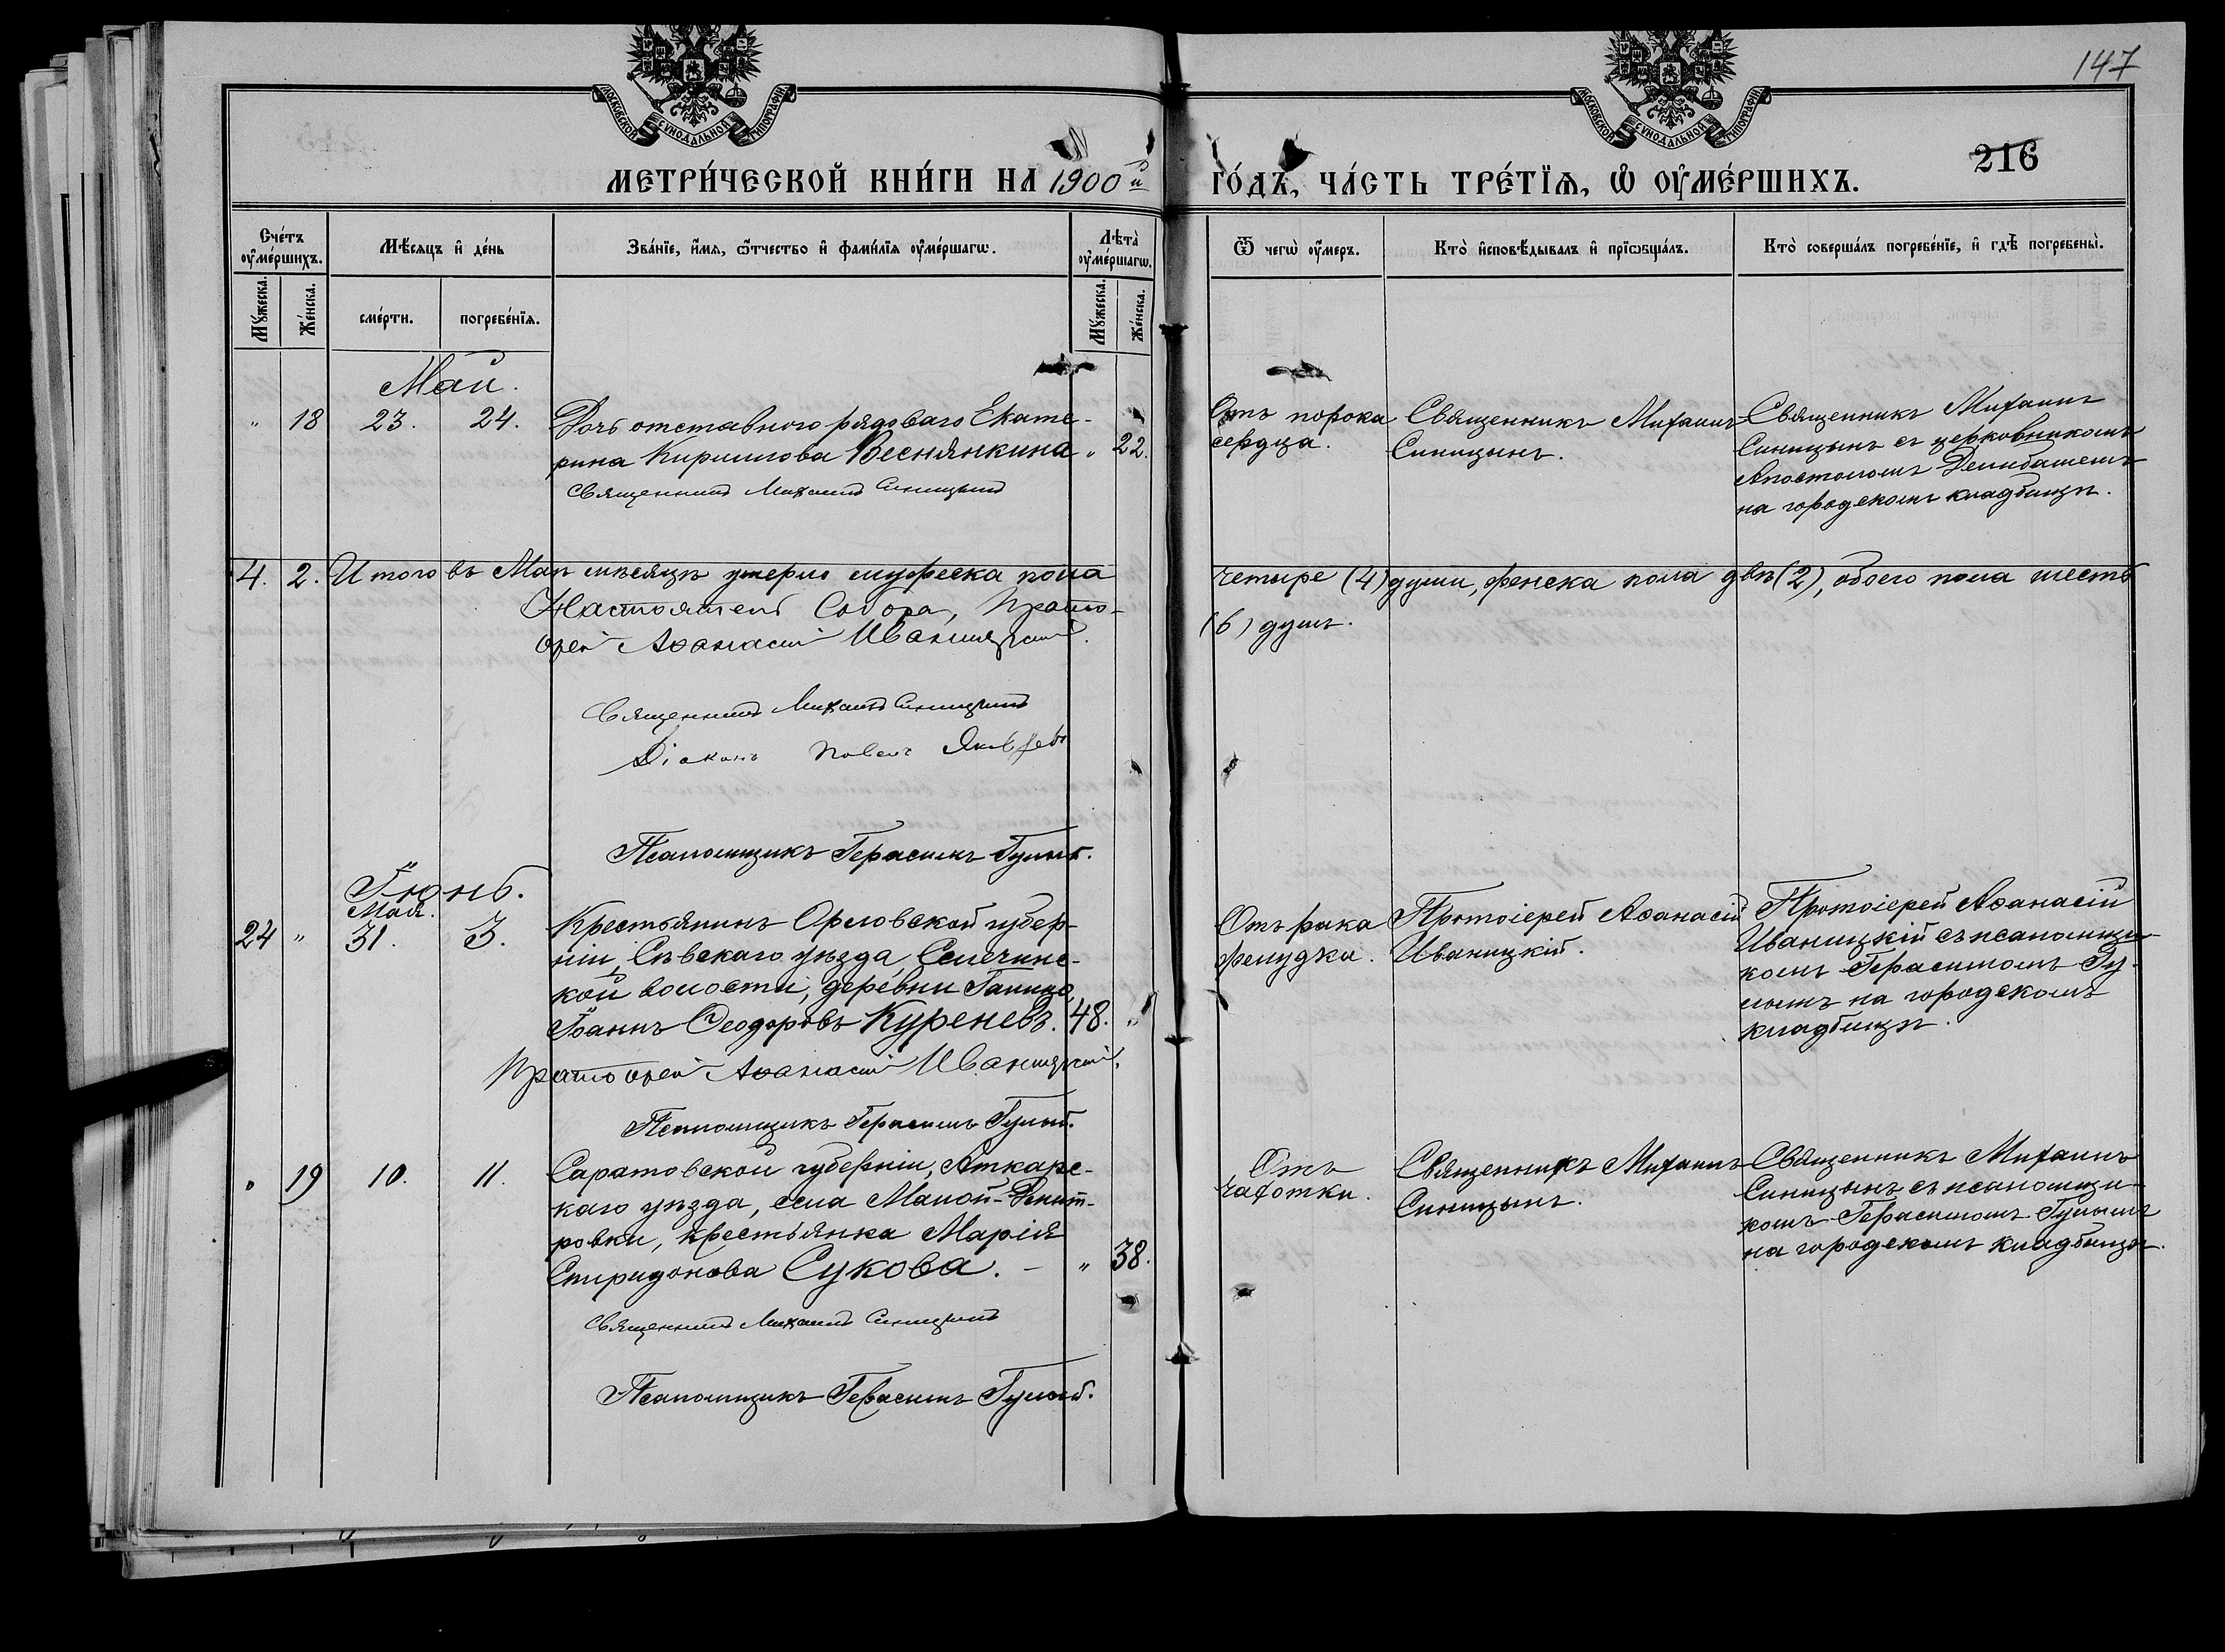 147
МОСКОВСКОЙ СѴНОДАЛЬНОЙ ТИПОГРАФІИ
МОСКОВСКОЙ СѴНОДАЛЬНОЙ ТИПОГРАФІИ
216
МЕТРИ́ЧЕСКОЙ КНИ́ГИ НА 1900й
ГО́ДЪ, ЧА́СТЬ ТРЕ́ТЇѦ, Ѡ҆ ОУ҆МЕ́РШИХЪ.
Сче́тъ оу҆ме́ршихъ.
Мꙋ́жеска.
Же́нска.
Мѣ́сяцъ и҆ де́нь
сме́рти.
погребе́нїѧ.
Зва́нїе, и҆́мѧ, ѻ҆́тчество и҆ фами́лїѧ оу҆ме́ршагѡ.
Лѣ́та оу҆ме́ршагѡ.
Мꙋ́жеска.
Же́нска.
Ѿ чегѡ̀ оу҆́меръ.
Кто̀ и҆сповѣ́дывалъ и҆ прїѡбща́лъ.
Кто̀ соверша́лъ погребе́нїе, и҆ гдѣ̀ погребены̀.
Май.
" 18 23. 24.
Дочь отставного рядоваго Екате-
рина Кириллова Веснянкина " 22.
Священникъ Михаилъ Синицынъ
Отъ порока
сердца.
Священникъ Михаилъ
Синицынъ.
Священникъ Михаилъ
Синицынъ съ церковникомъ
Апостоломъ
на городскомъ кладбищѣ.
4. 2. Итого въ Маѣ мѣсяцѣ умерло мужеска пола
четыре (4) души, женска пола двѣ (2), обоего пола шесть
(6) душъ.
Настоятель Собора, Прото-
ерей Аѳанасій Иваницкій.
Священникъ Михаилъ Синицынъ
Діаконъ Павелъ
Псаломщикъ Герасимъ Гулый.
Іюнь.
Мая.
24 " 31. 3.
Крестьянинъ Орловской губер-
ніи, Сѣвскаго уѣзда,
кой волости, деревни
Іоаннъ Ѳеодоровъ Куреневъ. 48. "
Протоерей Аѳанасій Иваницкій.
Псаломщикъ Герасимъ Гулый.
Отъ рака
желудка.
Протоіерей Аѳанасій
Иваницкій.
Протоіерей Аѳанасій
Иваницкій съ псаломщи-
комъ Герасимомъ Гу-
лымъ на городскомъ
кладбищѣ.
" 19 10. 11.
Саратовской губерніи, Аткарс-
каго уѣзда, села Малой-Дмит-
ровки, крестьянка Марія
Спиридонова Сукова. — " 38.
Священникъ Михаилъ Синицынъ
Псаломщикъ Герасимъ Гулый.
Отъ
чахотки.
Священникъ Михаилъ
Синицынъ.
Священникъ Михаилъ
Синицынъ съ псаломщи-
комъ Герасимомъ Гулымъ
на городскомъ кладбищѣ.